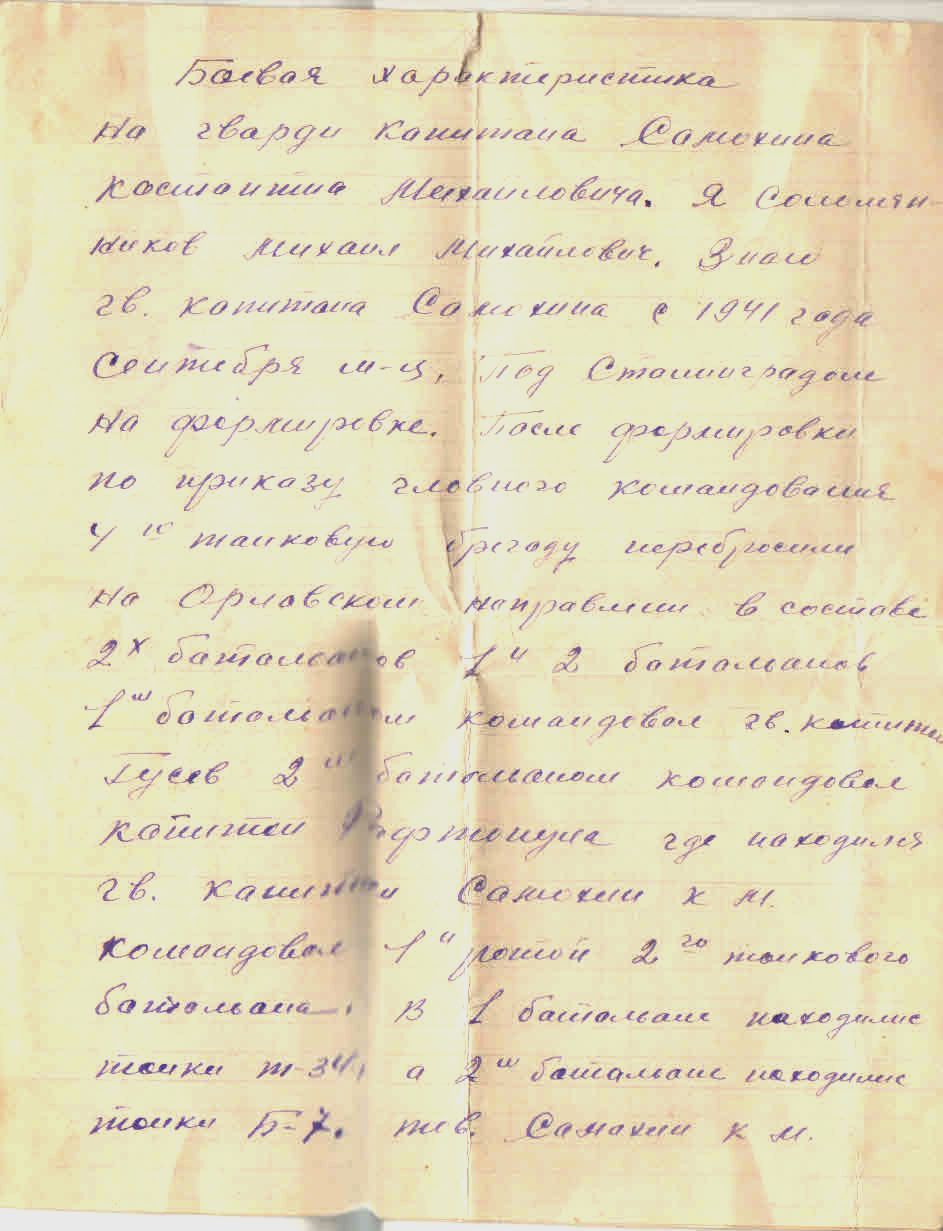 Боевая характеристика
на гварди капитана Самохина
Костантина Михаиловича. Я Соломян-
ников Михаил Михайлович. Знаю
гв. капитана Самохина с 1941 года
Сентебря м-ц. Под Сталинградом
на формировке. После формировки
по приказу гловного командования
4ю танковую брегаду перебросили
на Орловском направлении в составе
2х баталианов 1и 2 баталианов
1м баталианом командовал гв. капитан
Гусев 2м баталианом командовал
капитан где находился
гв. капитан Самохин К М.
командовал 1й ротой 2го танкового
баталиана. В 1 баталиане находилис
танки т-34, а 2м баталиане находилис
танки Б-7. тов. Самахин К М.